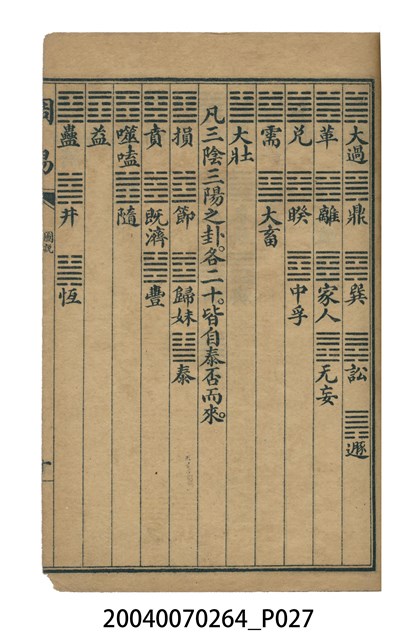 大過 鼎 巽 訟 遯
革 離 家人 无妄
兌 睽 中孚
需 大畜
大壯
凡三陰三陽之卦。各二十。皆自泰否而來。
損 節 歸妹 泰
賁 既濟 豐
噬嗑 隨
益
蠱 井 恆
周易 圖說
20040070264_P027